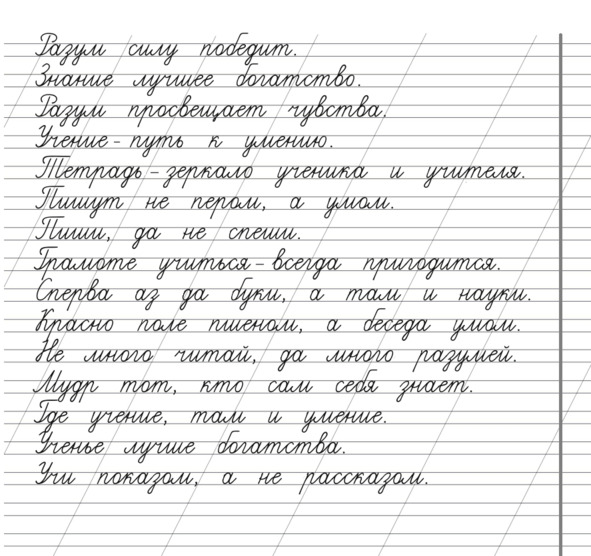 Разум силу победит.
Знание лучшее богатство.
Разум просвещает чувства.
Учение - путь к умению.
Тетрадь - зеркало ученика и учителя.
Пишут не пером, а умом.
Пиши, да не спеши.
Грамоте учиться - всегда пригодится.
Сперва аз да буки, а там и науки.
Красно поле пшеном, а беседа умом.
Не много читай, да много разумей.
Мудр тот, кто сам себя знает.
Где учение, там и умение.
Ученье лучше богатства.
Учи показом, а не рассказом.